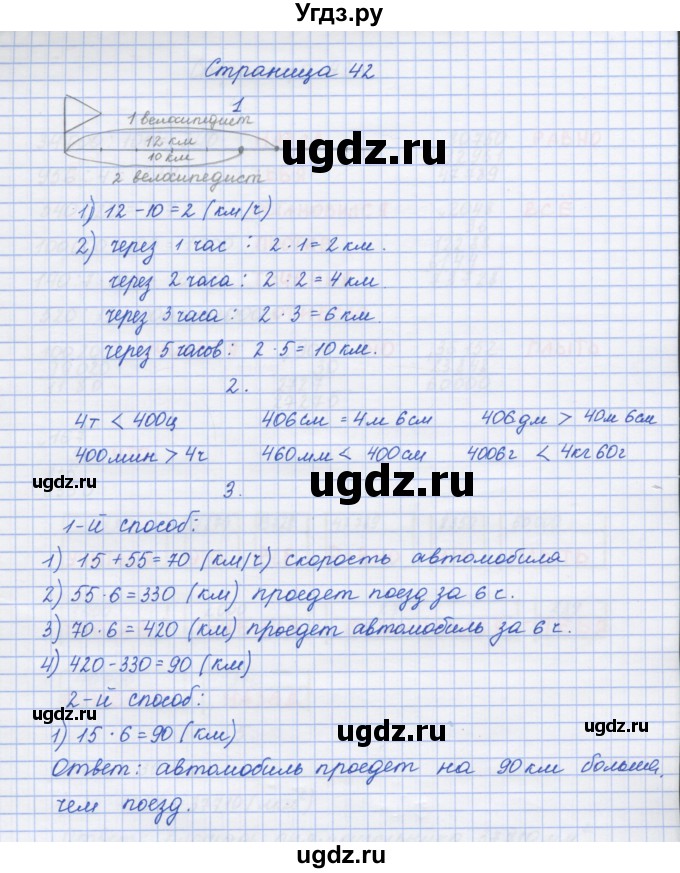 Угдз.ру
Страница 42
1
1 велосипедист
12 км
10 км
ugdz.ru
2 велосипедист
1) 12 - 10 = 2 (км/ч)
2) через 1 час : 2 · 1 = 2 км.
через 2 часа : 2 · 2 = 4 км
через 3 часа : 2 · 3 = 6 км.
ugdz.ru
через 5 часов : 2 · 5 = 10 км.
2.
4т < 400ц 406см = 4м 6см 406дм > 40м 6см
400мин > 4ч 460мм < 400см 4006г < 4кг 60г
ugdz.ru ugdz.ru
3.
1-й способ:
1) 15 + 55 = 70 (км/ч) скорость автомобила
ugdz.ru
2) 55 · 6 = 330 (км) проедет поезд за 6 с.
3) 70 · 6 = 420 (км) проедет автомобиль за 6 ч.
4) 420 - 330 = 90 (км)
2-й способ:
ugdz.ru ugdz.ru ugdz.ru
1) 15 · 6 = 90 (км)
Ответ: автомобиль проедет на 90 км больше,
чем поезд.
ugdz.ru